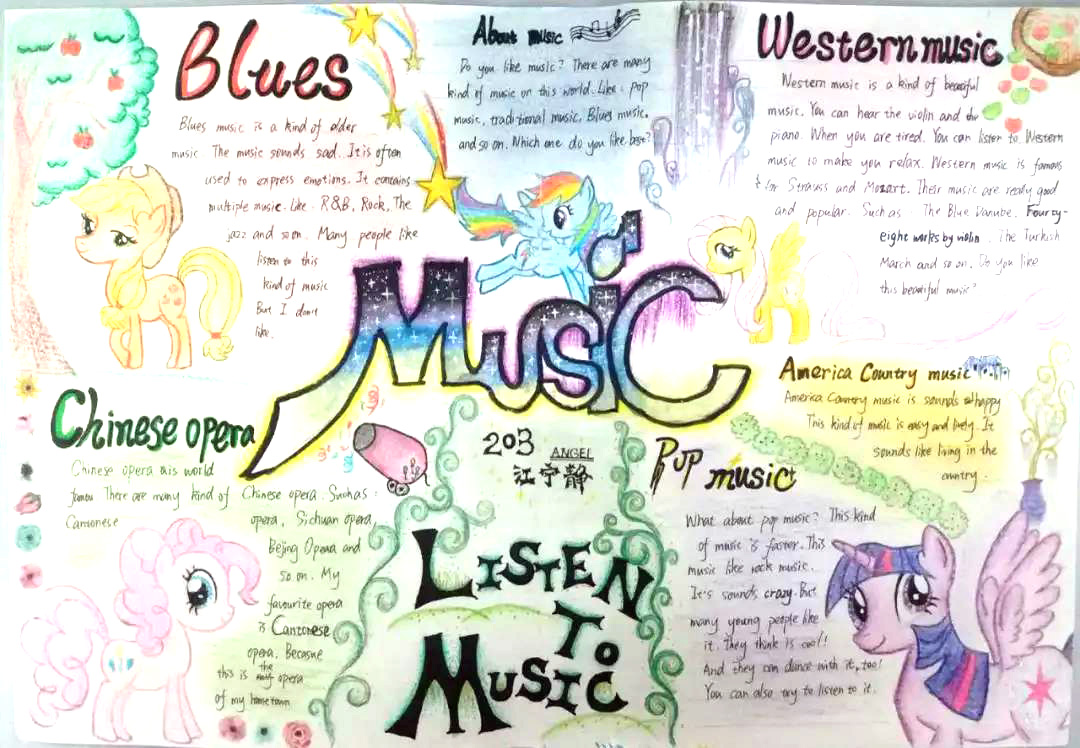 Blues
Blues music is a kind of older
music. The music sounds sad. It is often
used to express emotions. It contains
multiple music. Like: R&B, Rock, The
jazz and so on. Many people like
listen to this
kind of music
But I don't
like.
About music
Do you like music? There are many
kind of music on this world. Like: pop
music, traditional music, Blues music,
and so on. Which one do you like best?
Western music
Western music is a kind of beautiful
music. You can hear the violin and the
piano. When you are tired. You can listen to Western
music to make you relax. Western music is famous
for Strauss and Mozart. Their music are really good
and popular. Such as: The Blue Danube. Fourty-
eight works by violin. The Turkish
March and so on. Do you like
this beautiful music?
Music
Chinese opera
Chinese opera ais world
famou There are many kind of Chinese opera. Such as:
Cantonese opera, Sichuan opera,
Beijing Opera and
so on. My
favourite opera
is Cantonese
opera. Because
this is the opera
of my hometown
203 ANGEL
江宁静
LISTEN
TO
MUSIC
America Country music
America Country music is sounds happy
This kind of music is easy and lively. It
sounds like living in the
country.
Pop music
What about pop music? This kind
of music is faster. This
music like rock music.
It's sounds crazy. But
many young people like
it. They think is cool!
And they can dance with it, too!
You can also try to listen to it.